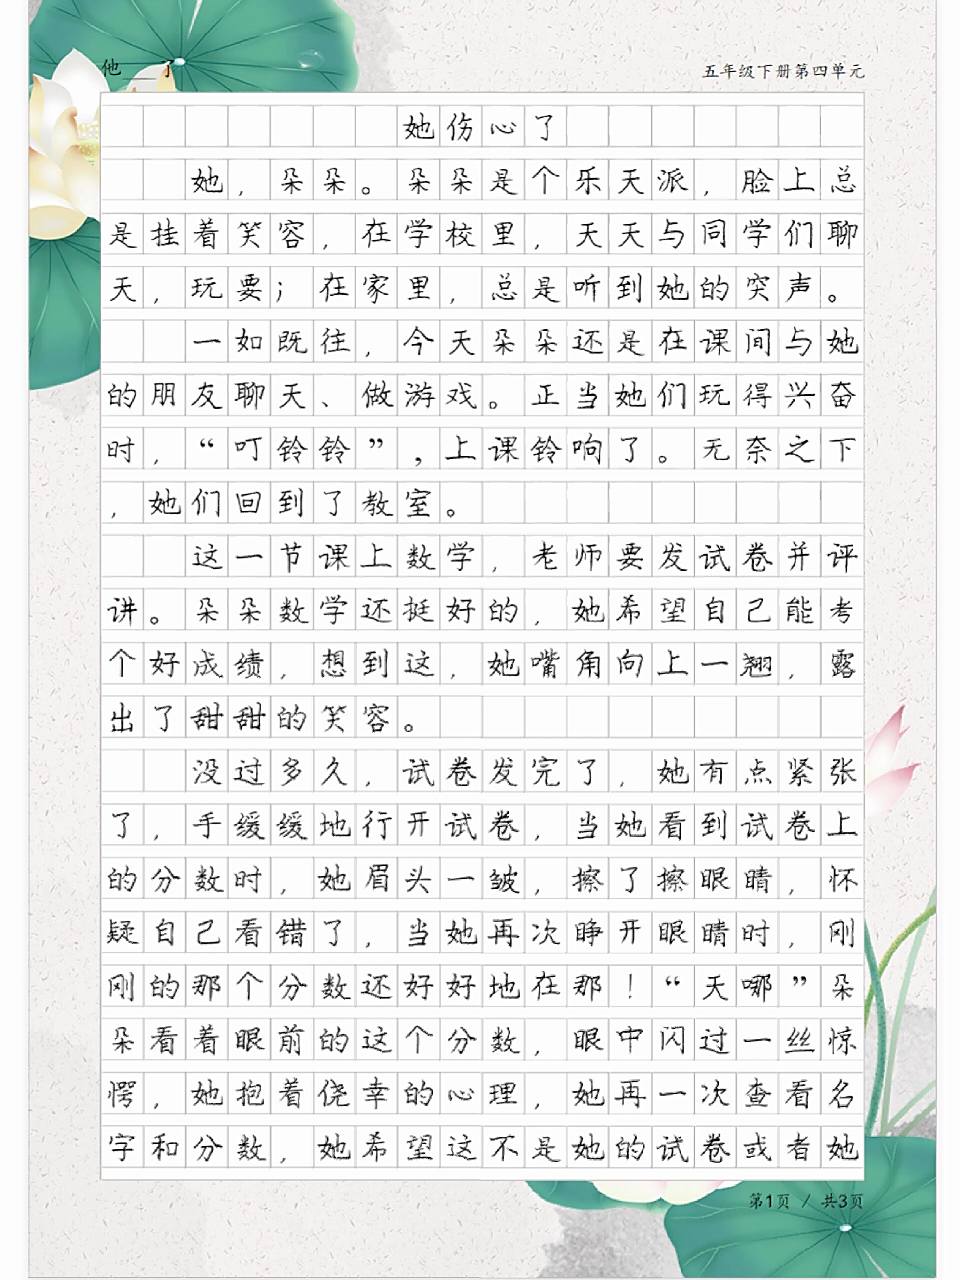 他___了
五年级下册第四单元
她伤心了
她，朵朵。朵朵是个乐天派，脸上总
是挂着笑容，在学校里，天天与同学们聊
天，玩要；在家里，总是听到她的突声。
一如既往，今天朵朵还是在课间与她
的朋友聊天、做游戏。正当她们玩得兴奋
时，“叮铃铃”，上课铃响了。无奈之下
，她们回到了教室。
这一节课上数学，老师要发试卷并评
讲。朵朵数学还挺好的，她希望自己能考
个好成绩，想到这，她嘴角向上一翘，露
出了甜甜的笑容。
没过多久，试卷发完了，她有点紧张
了，手缓缓地行开试卷，当她看到试卷上
的分数时，她眉头一皱，擦了擦眼睛，怀
疑自己看错了，当她再次睁开眼睛时，刚
刚的那个分数还好好地在那！“天哪”朵
朵看着眼前的这个分数，眼中闪过一丝惊
愕，她抱着侥幸的心理，她再一次查看名
字和分数，她希望这不是她的试卷或者她
第1页 / 共3页